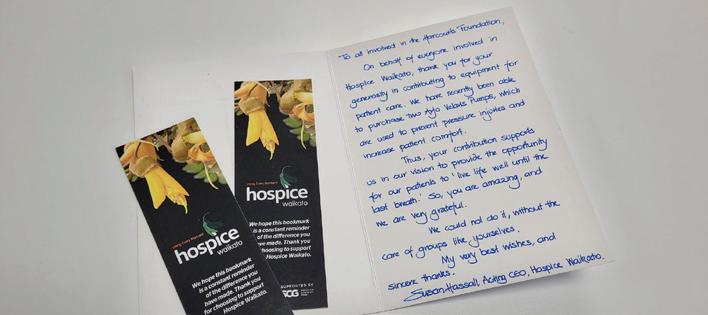 To all involved in the Harcourts Foundation,
On behalf of everyone involved in
Hospice Waikato, thank you for your
generosity in contributing to equipment for
patient care. We have recently been able
to purchase two Pumps, which
are used to prevent pressure injuries and
increase patient comfort.
Thus, your contribution supports
us in our vision to provide the opportunity
for our patients to 'live life well until the
last breath.' So, you are amazing, and
we are very grateful.
We could not do it, without the
care of groups like yourselves.
My very best wishes, and
sincere thanks.
Susan Hassall, Acting CEO, Hospice Waikato.
Living Every Moment
hospice
waikato
We hope this bookmark
is a constant reminder
of the difference you
have made. Thank you
for choosing to support
Hospice Waikato.
Living Every Moment
hospice
waikato
We hope this bookmark
is a constant reminder
of the difference you
have made. Thank you
choosing to support
Hospice Waikato.
SUPPORTED BY